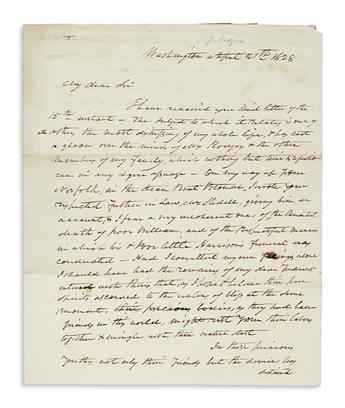 J. Rodgers
Washington April 21th 1828
My dear Sir
I have received your kind letter of the
15th instant - The subject to which it relates, is one
the most distressing of my whole life, & has cast
a gloom over the mind of Mrs Rodgers & the other
members of my family, which nothing but time &
can in any degree assuage - On my way up from
Norfolk, in the Steam Boat Potomac, I wrote your
respected Father in Law, giving him an
account, & I fear a very incoherent one, of the
death of poor William, and of the respectful manner
in which his & Poor little Harrisons Funeral was
conducted - Had I consulted my own feelings alone
I should have had the remains of my dear
with them, that, as I hope & believe their pure
spirits ascended to the realms of bliss at the same
moment, their bodies, as they had been
friends in this world, might rest from their labors
together & mingle with their native dust
In those precious
youths not only their friends but the service has